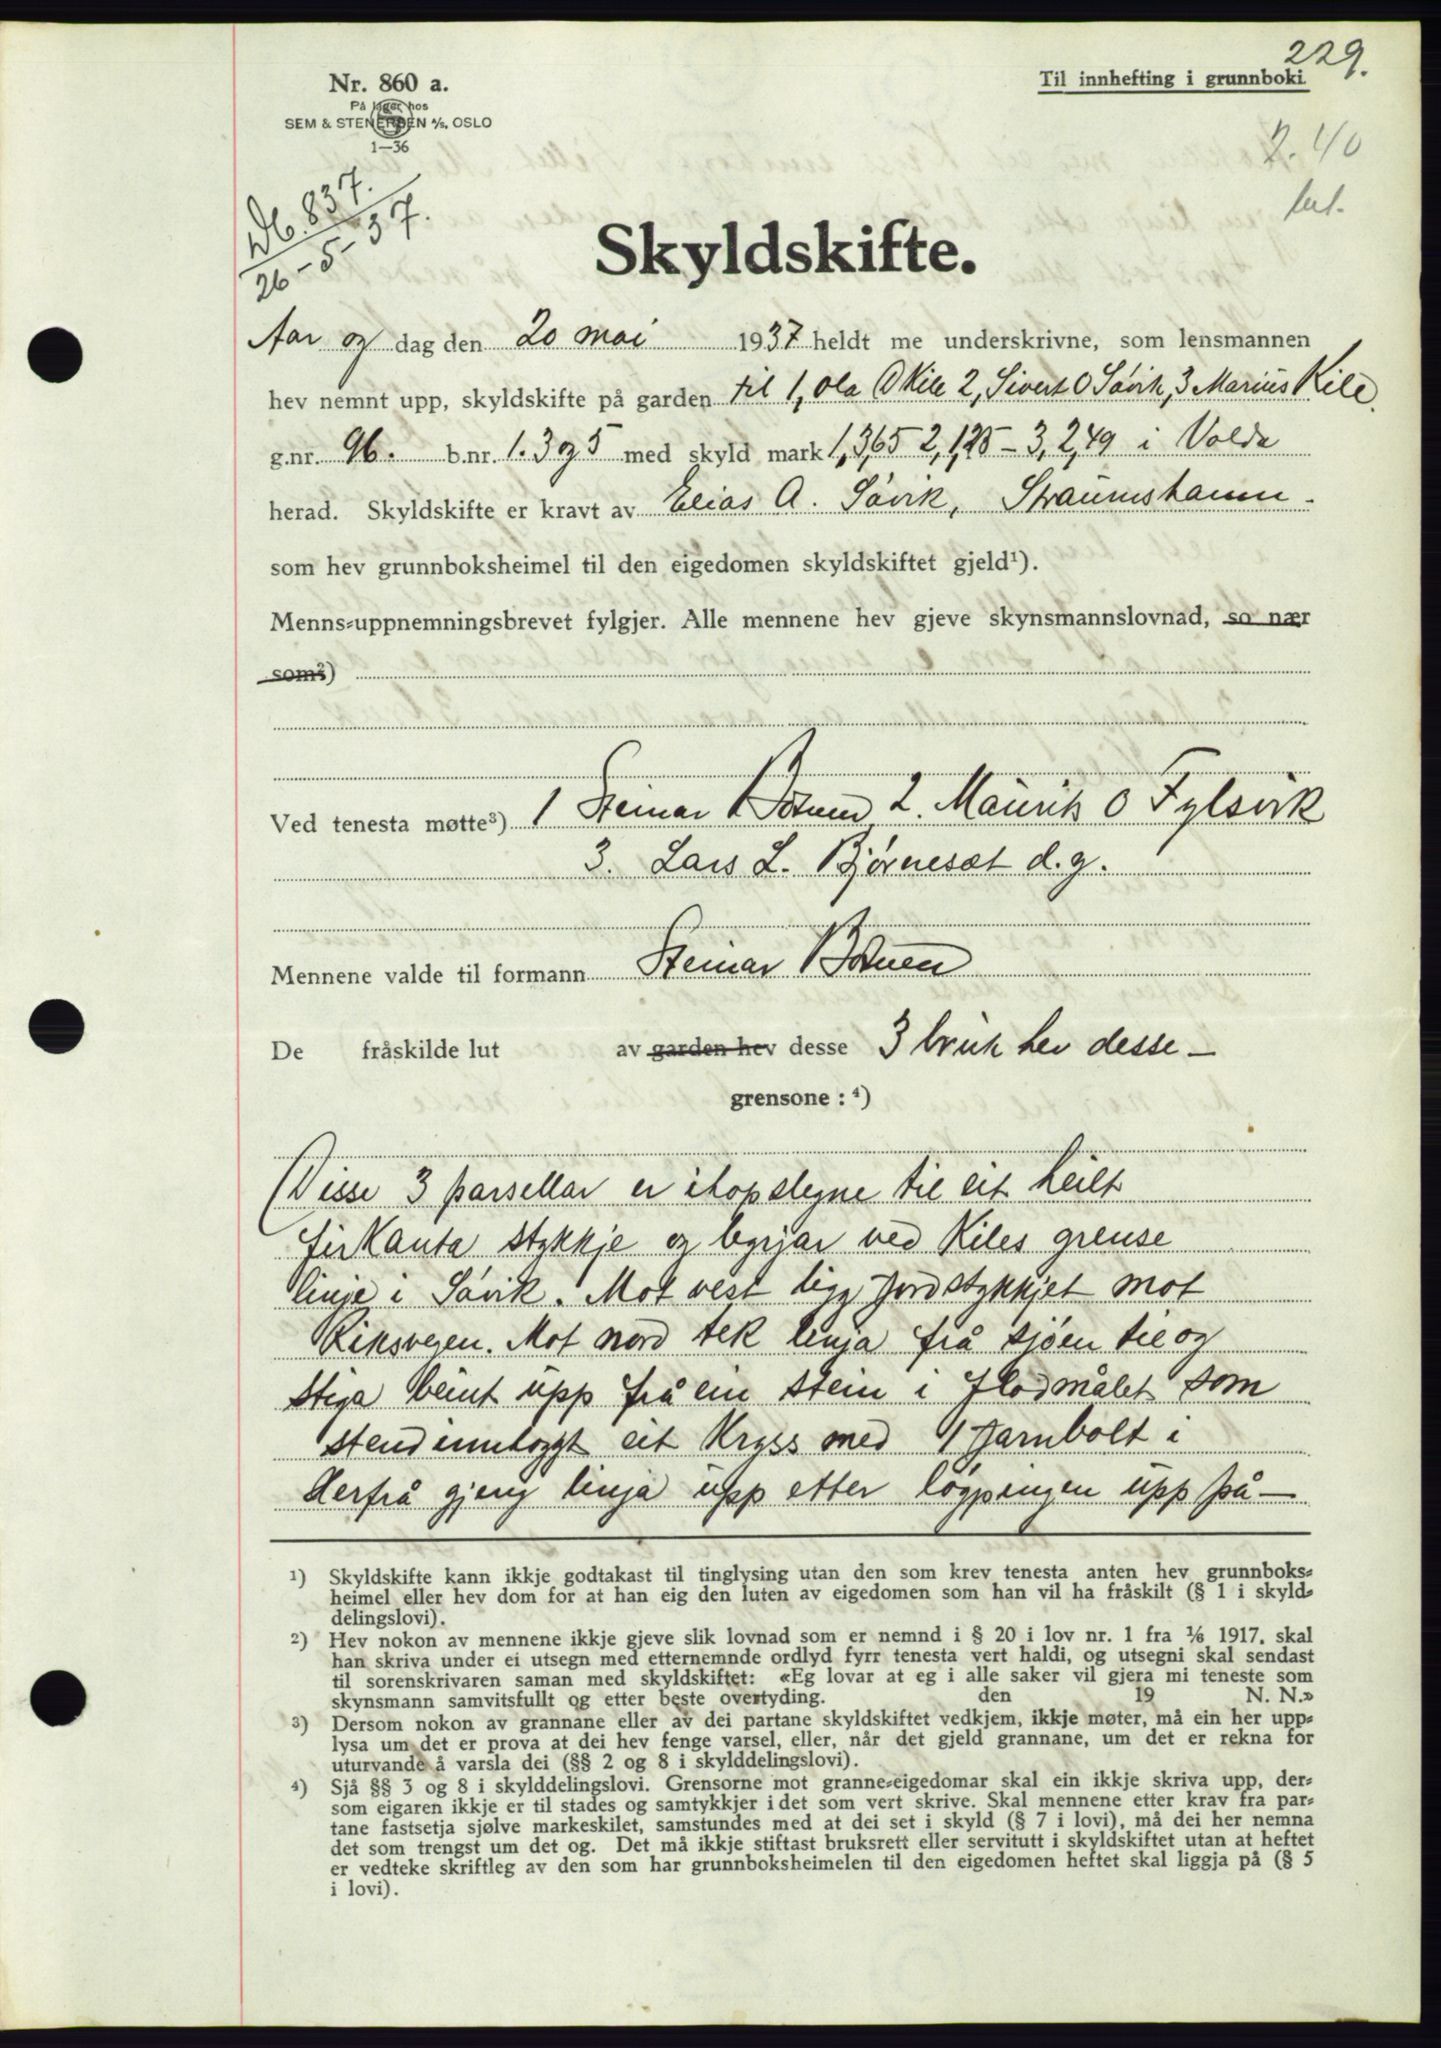 229.
Nr. 860 a.
Til innhefting i grunnboki
På lager hos
SEM & STENERSEN A/S. OSLO
1—36
7.40
Db. 837.
26-5-37.
Skyldskifte.
Aar og dag den 20 mai 1937 heldt me underskrivne, som lensmannen
hev nemnt upp, skyldskifte på garden til 1, Ola O Kile 2, Sivert O Søvik, 3 Marius Kile.
g.nr. 96. b.nr. 1. 3 og 5 med skyld mark 1, 3,65 2, 1,25 – 3, 2,49 i Volda
herad. Skyldskifte er kravt av Elias A. Søvik, Straumshamn.
som hev grunnboksheimel til den eigedomen skyldskiftet gjeld¹).
Menns-uppnemningsbrevet fylgjer. Alle mennene hev gjeve skynsmannslovnad, so nær
som²)
Ved tenesta møtte³) 1 Steinar Botnen, 2. Maurits O Fylsvik
3. Lars L. Bjørneset d.g.
Mennene valde til formann Steinar Botnen
De fråskilde lut av garden hev desse 3 bruk hev desse —
grensone : ⁴)
Disse 3 parsellar er ihopslegne til eit heilt
firkanta stykkje og byrjar ved Kiles grense
linje i Søvik. Mot vest ligg jordstykkjet mot
Riksvegen. Mot nord tek linja frå sjøen til og
stiga beint upp frå ein stein i flodmålet som
stend innhoggt eit Kryss med 1 Jarnbolt i
derfrå gjeng linja upp etter løypingen upp på —
1) Skyldskifte kann ikkje godtakast til tinglysing utan den som krev tenesta anten hev grunnboks-
heimel eller hev dom for at han eig den luten av eigedomen som han vil ha fråskilt (§ 1 i skyld-
delingslovi).
2) Hev nokon av mennene ikkje gjeve slik lovnad som er nemnd i § 20 i lov nr. 1 fra 1/6 1917, skal
han skriva under ei utsegn med etternemnde ordlyd fyrr tenesta vert haldi, og utsegni skal sendast
til sorenskrivaren saman med skyldskiftet: «Eg lovar at eg i alle saker vil gjera mi teneste som
skynsmann samvitsfullt og etter beste overtyding. den 19 N. N.»
3) Dersom nokon av grannane eller av dei partane skyldskiftet vedkjem, ikkje møter, må ein her upp-
lysa um det er prova at dei hev fenge varsel, eller, når det gjeld grannane, um det er rekna for
uturvande å varsla dei (§§ 2 og 8 i skylddelingslovi).
4) Sjå §§ 3 og 8 i skylddelingslovi. Grensorne mot granne-eigedomar skal ein ikkje skriva upp, der-
som eigaren ikkje er til stades og samtykkjer i det som vert skrive. Skal mennene etter krav fra par-
tane fastsetja sjølve markeskilet, samstundes med at dei set i skyld (§ 7 i lovi), må dei her nemna
det som trengst um det og. Det må ikkje stiftast bruksrett eller servitutt i skyldskiftet utan at heftet
er vedteke skriftleg av den som har grunnboksheimelen til den eigedomen heftet skal liggja på (§ 5
i lovi).